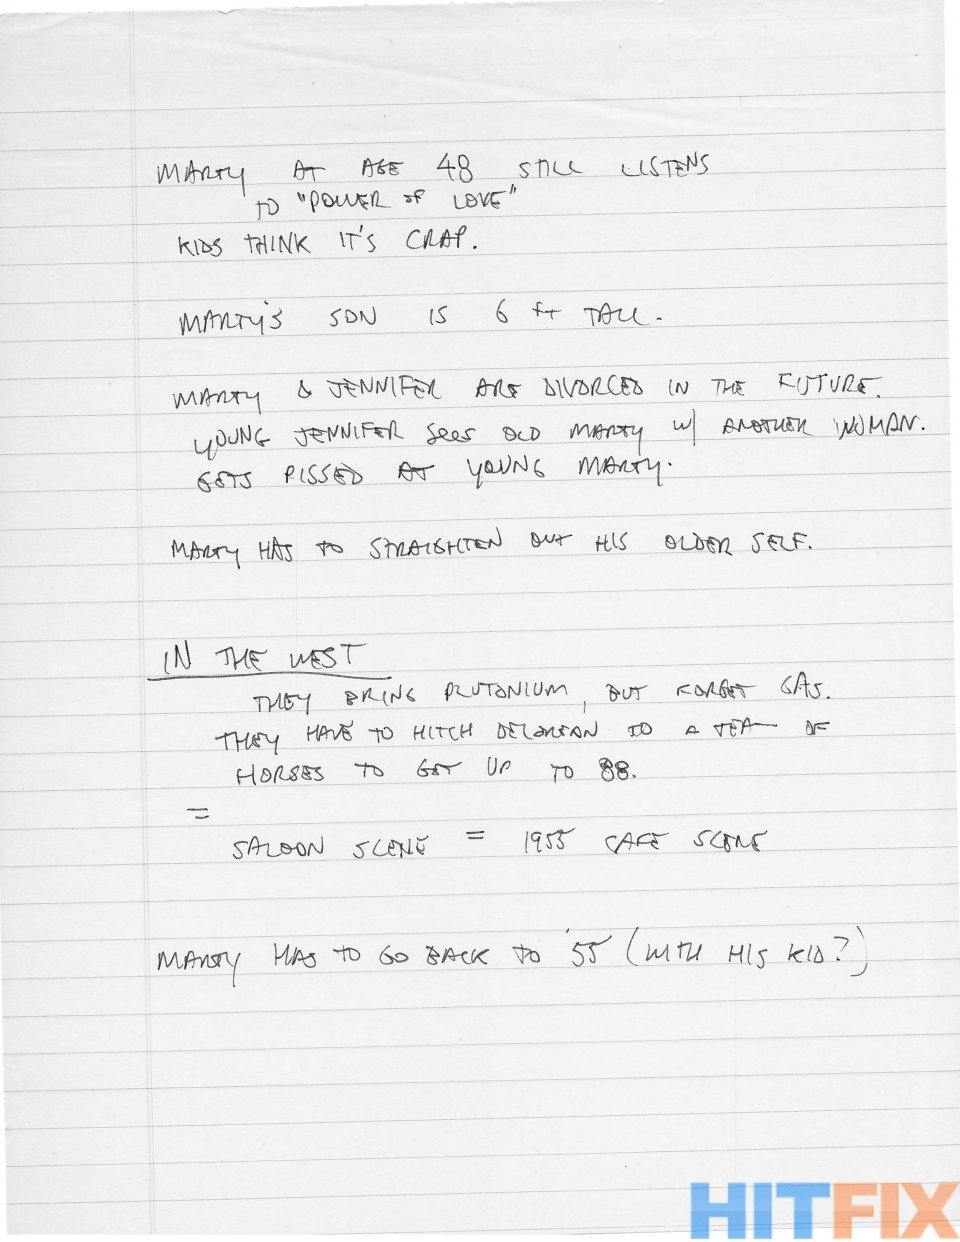 MARTY AT AGE 48 STILL LISTENS
TO "POWER OF LOVE"
KIDS THINK IT'S CRAP.
MARTY'S SON IS 6 FT TALL.
MARTY & JENNIFER ARE DIVORCED IN THE FUTURE.
YOUNG JENNIFER SEES OLD MARTY W/ ANOTHER WOMAN.
GETS PISSED AT YOUNG MARTY.
MARTY HAS TO STRAIGHTEN OUT HIS OLDER SELF.
IN THE WEST
THEY BRING PLUTONIUM, BUT FORGET GAS.
THEY HAVE TO HITCH DELOREAN TO A TEAM OF
HORSES TO GET UP TO 88.
=
SALOON SCENE = 1955 CAFE SCENE
MARTY HAS TO GO BACK TO '55 (WITH HIS KID?)
HITFIX